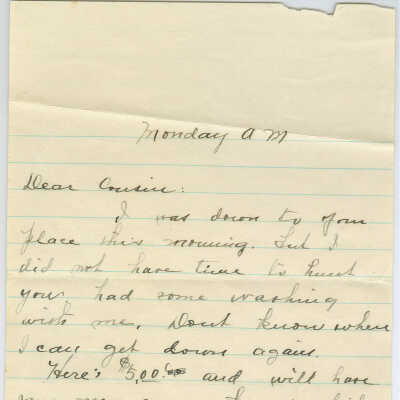 Monday A M
Dear Cousin:
I was down to your
place this morning. but I
did not have time to hunt
you, had some washing
with me, Dont know when
I can get down again.
Here's $5.00 and will have